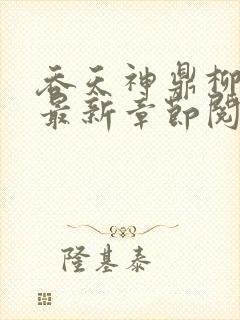 吞天神鼎柳
最新章节阅
隆基泰